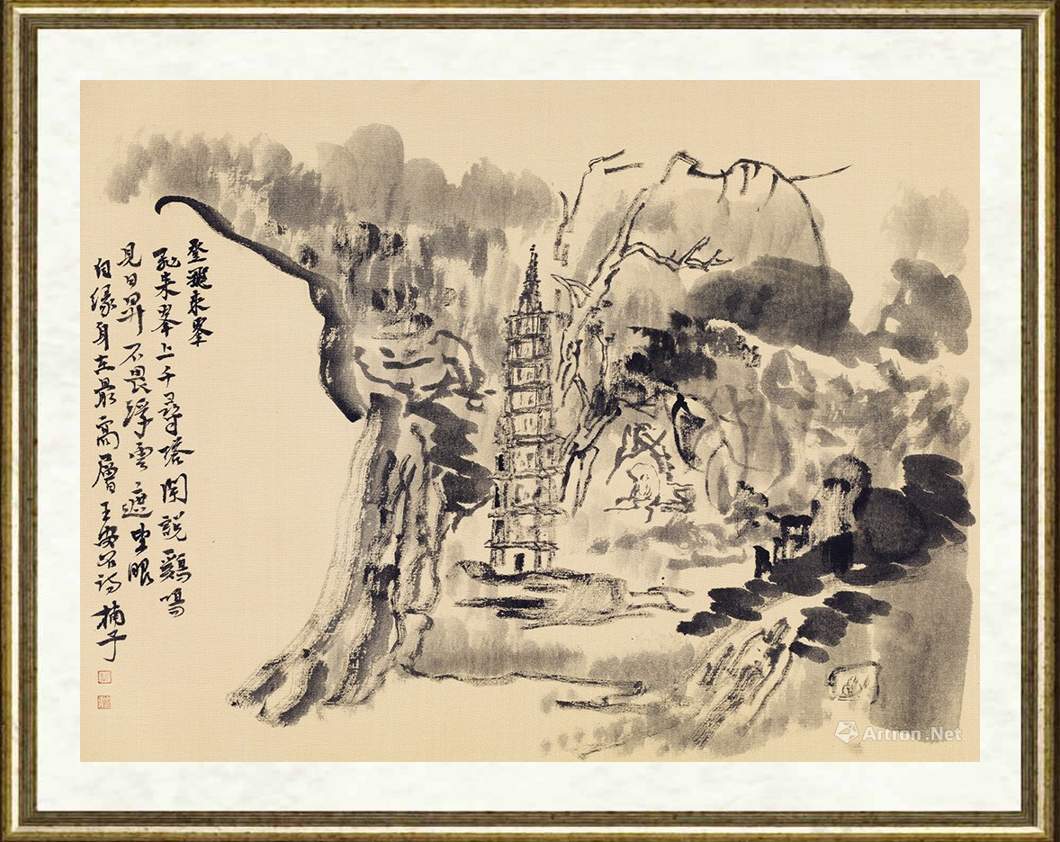 登飛來峯
飛來峯上千尋塔聞說鷄鳴
見日昇不畏浮雲遮望眼
自緣身在最高層王安石詩 楠子
Artron.Net